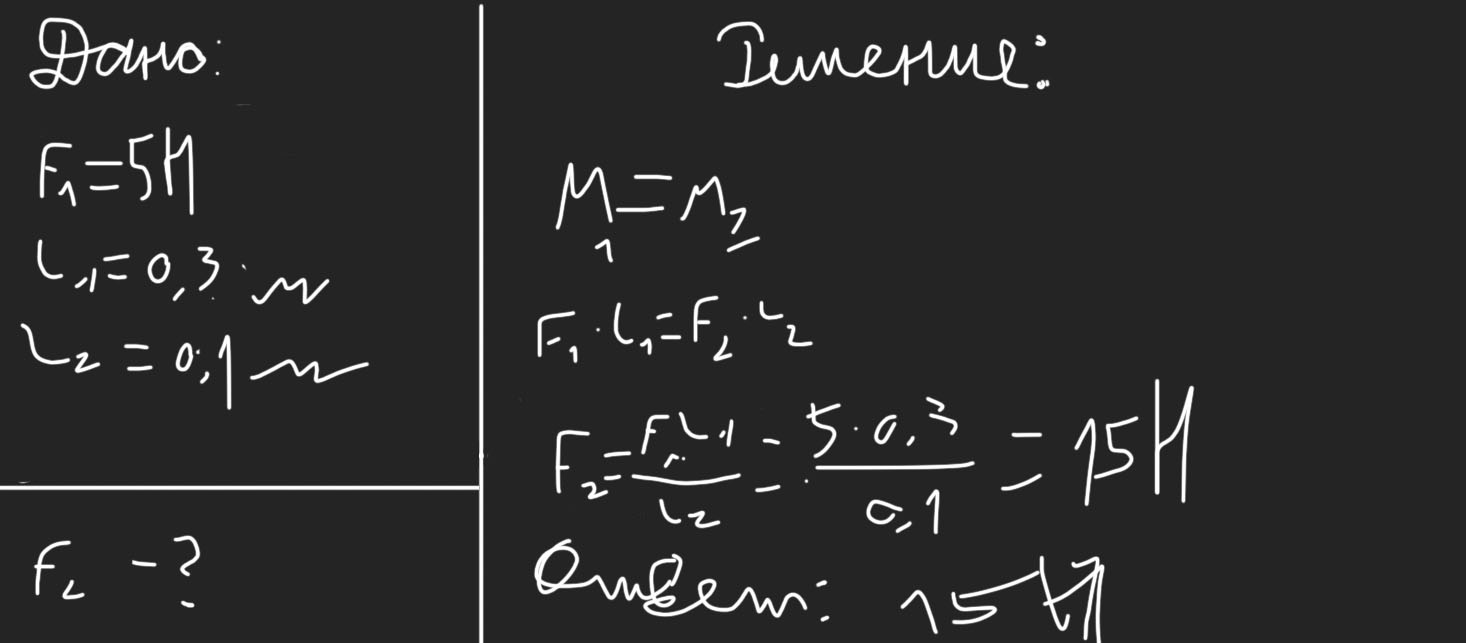 Дано:
F₁=5Н
L₁=0,3 м
L₂=0,1 м
F₂ - ?
Решение:
M₁=M₂
F₁·L₁=F₂·L₂
F₂=F₁L₁/L₂=5·0,3/0,1=15Н
Ответ: 15Н